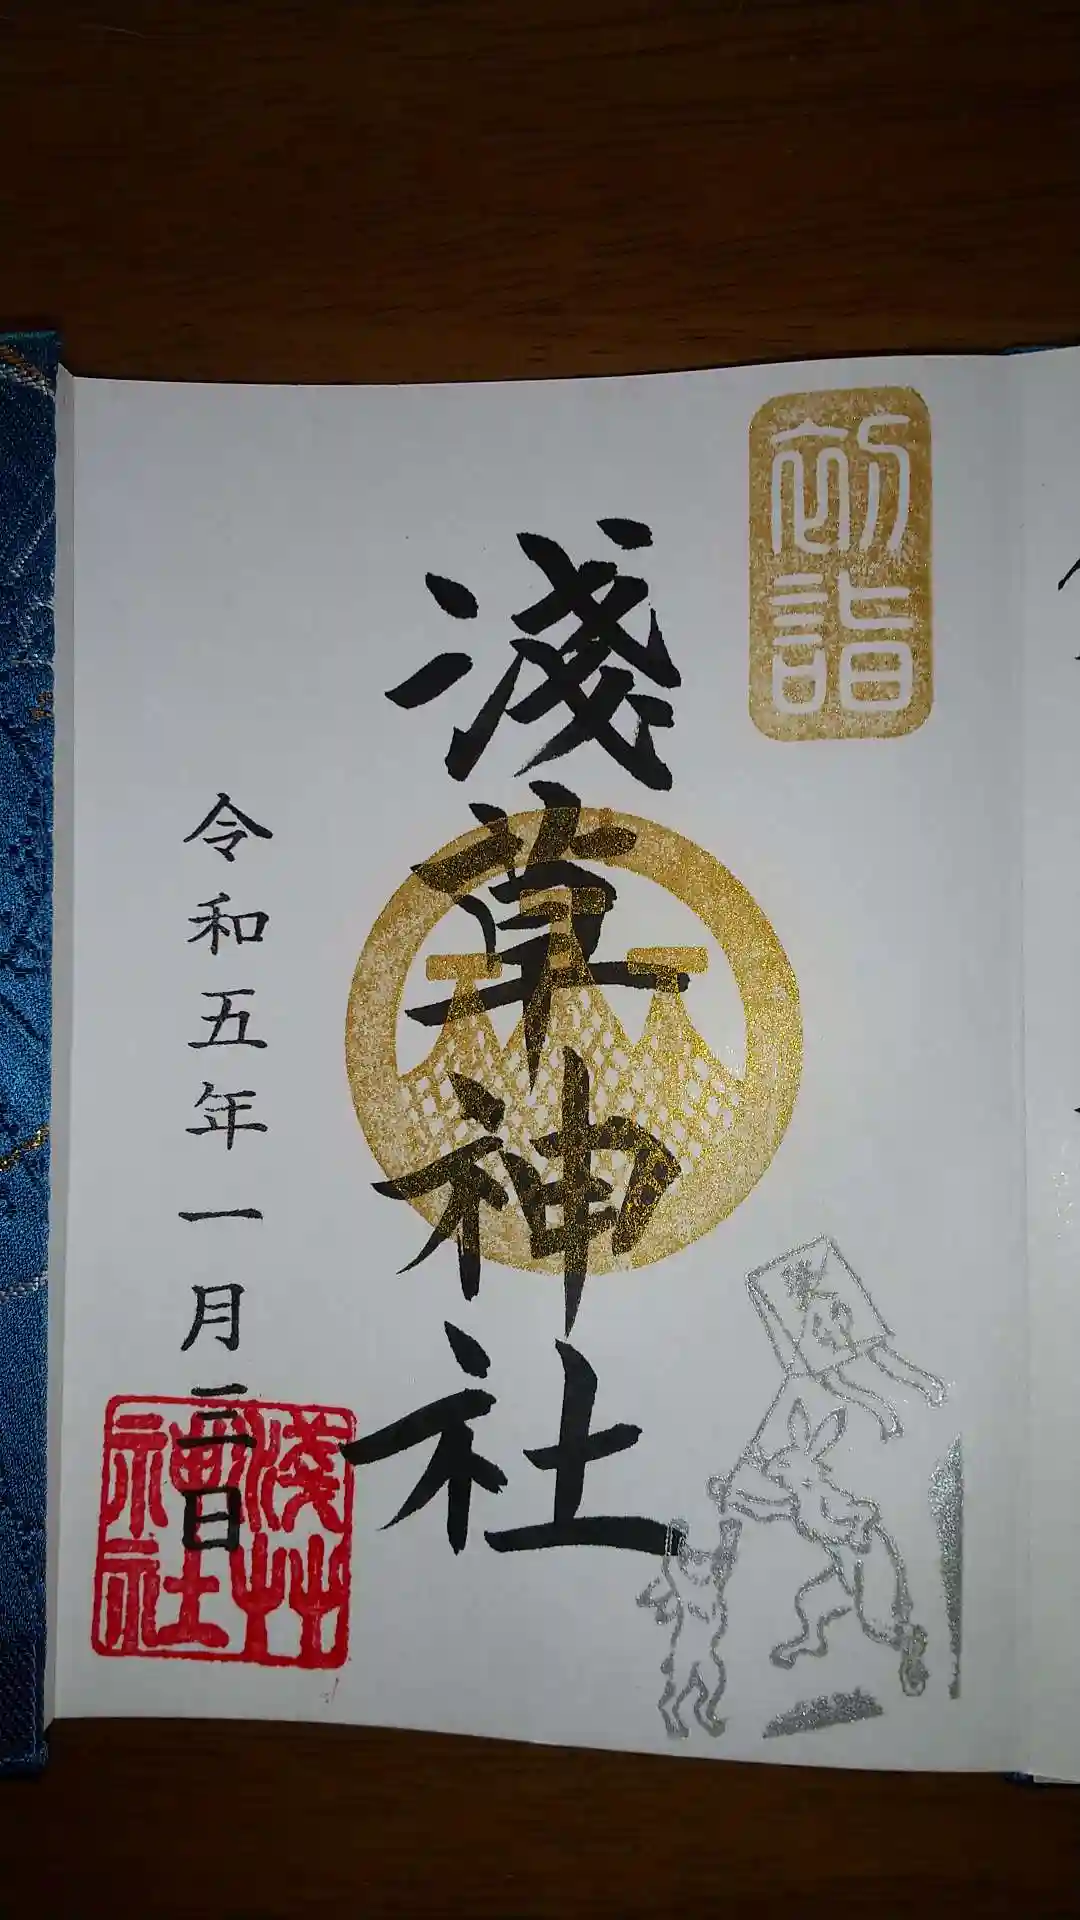 初詣
淺草神社
令和五年一月三日
淺艸神社